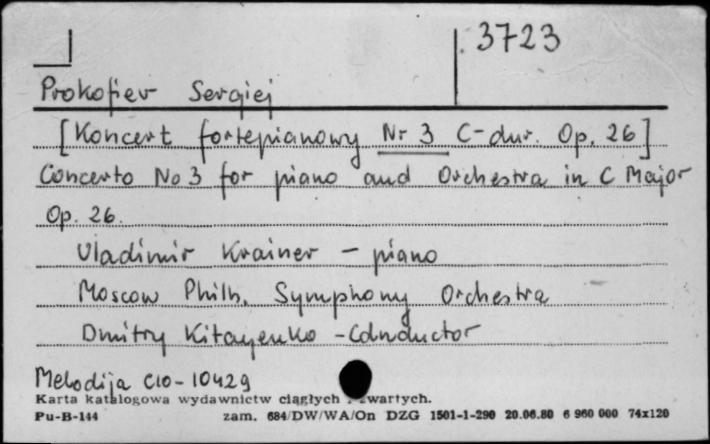 3723
Prokofiev Sergiej
[Koncert fortepianowy Nr 3 C-dur. Op. 26]
Concerto No 3 for piano and Orchestra in C Major
Op. 26.
Vladimir Krainer - piano
Moscow Philh. Symphony Orchestra
Dmitry Kitayenko - Conductor
Melodija C10-10429
Karta katalogowa wydawnictw ciągłych i zwartych.
Pu-B-144 zam. 684/DW/WA/On DZG 1501-1-290 20.06.80 6 960 000 74x120